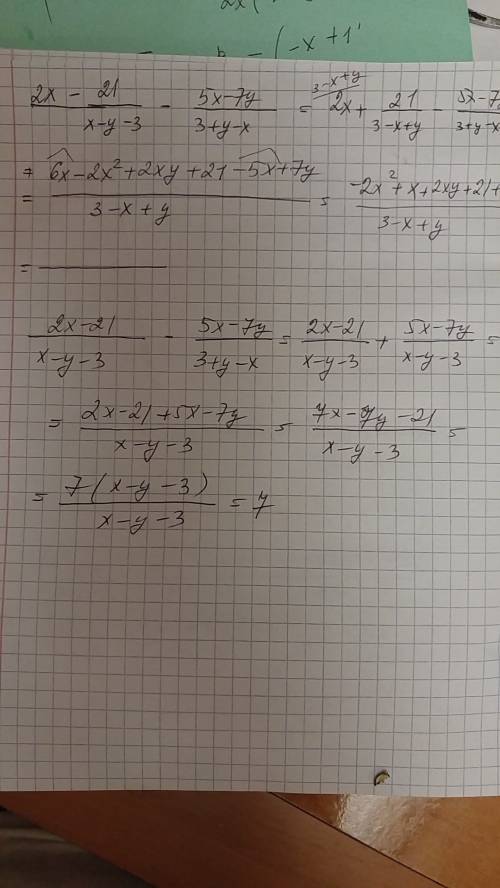 2x (
- (-x+1
2x - 21/(x-y-3) - (5x-7y)/(3+y-x) = 2x^{3-x+y} + 21/(3-x+y) - (5x-7y)/(3+y-x
= (6x-2x²+2xy+21-5x+7y)/(3-x+y) = (-2x²+x+2xy+21+)/(3-x+y)
=
(2x-21)/(x-y-3) - (5x-7y)/(3+y-x) = (2x-21)/(x-y-3) + (5x-7y)/(x-y-3) =
= (2x-21+5x-7y)/(x-y-3) = (7x-7y-21)/(x-y-3) =
= 7(x-y-3)/(x-y-3) = 7